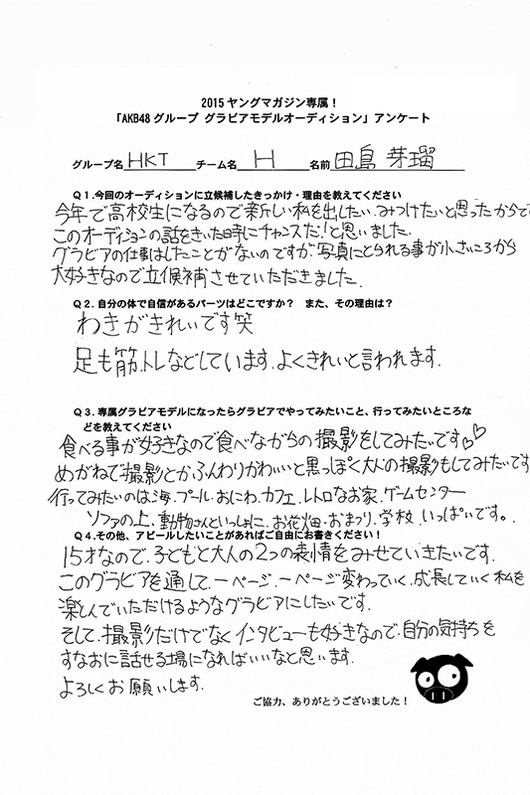 2015 ヤングマガジン専属！
「AKB48グループ グラビアモデルオーディション」アンケート
グループ名 HKT チーム名 H 名前 田島 芽瑠
Q1.今回のオーディションに立候補したきっかけ・理由を教えてください
今年で高校生になるので新しい私を出したい.みつけたいと思ったからで
このオーディションの話をきいた時にチャンスだ!と思いました.
グラビアの仕事はしたことがないのですが.写真にとられる事が小さいころから
大好きなので立候補させていただきました.
Q2.自分の体で自信があるパーツはどこですか？ また、その理由は？
わきがきれいです笑
足も筋トレなどしています.よくきれいと言われます.
Q3.専属グラビアモデルになったらグラビアでやってみたいこと、行ってみたいところな
どを教えてください
食べる事が好きなので食べながらの撮影をしてみたいです♡♡
めがねで撮影とかふんわりかわいいと黒っぽく大人の撮影もしてみたいです
行ってみたいのは海.プール.おにわ.カフェ.レトロなお家.ゲームセンター
ソファの上.動物さんといっしょに.お花畑.おまつり.学校.いっぱいです。
Q4.その他、アピールしたいことがあればご自由にお書きください！
15才なので.子どもと大人の2つの表情をみせていきたいです.
このグラビアを通して.一ページ.一ページ変わっていく.成長していく私を
楽しんでいただけるようなグラビアにしたいです.
そして.撮影だけでなくインタビューも好きなので.自分の気持ちを
すなおに話せる場になればいいなと思います.
よろしくお願いします.
ご協力、ありがとうございました！